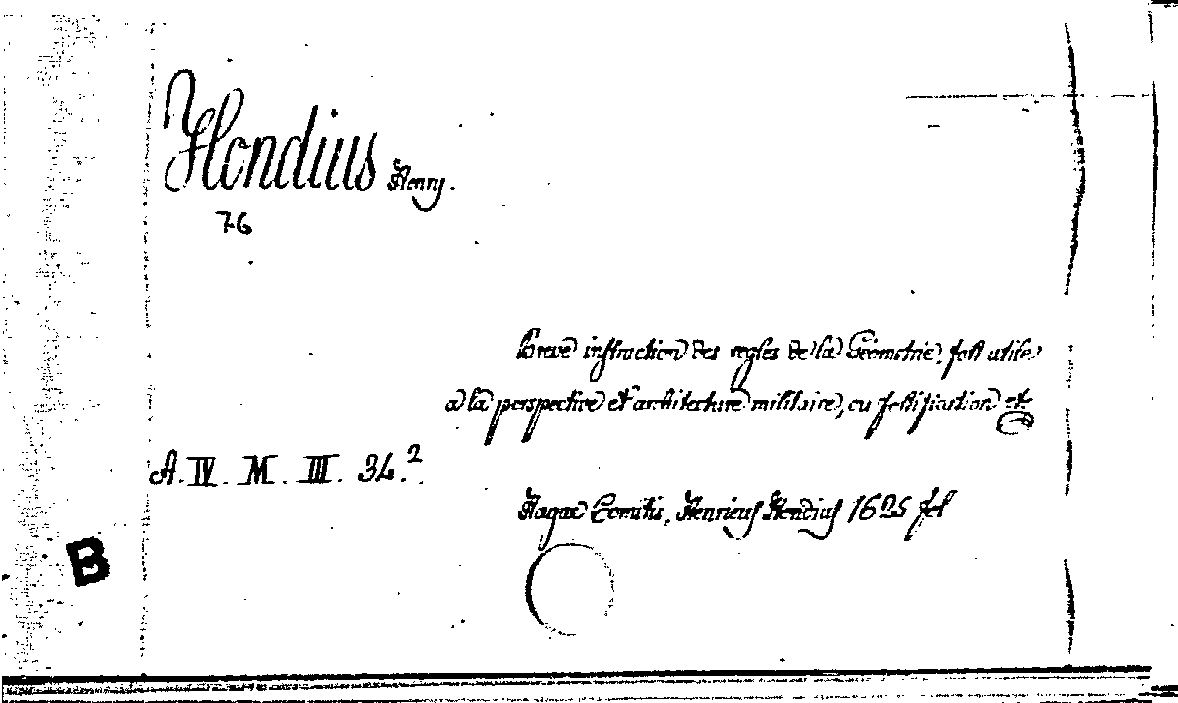 Hondius Henry.
76
Breve instruction des regles de la Geometrie, fort utile
a la perspective et architecture militaire, ou fortification etc
A. IV. M. III. 34.²
Hagae Comitis, Henricus Hondius 1625 fol
B